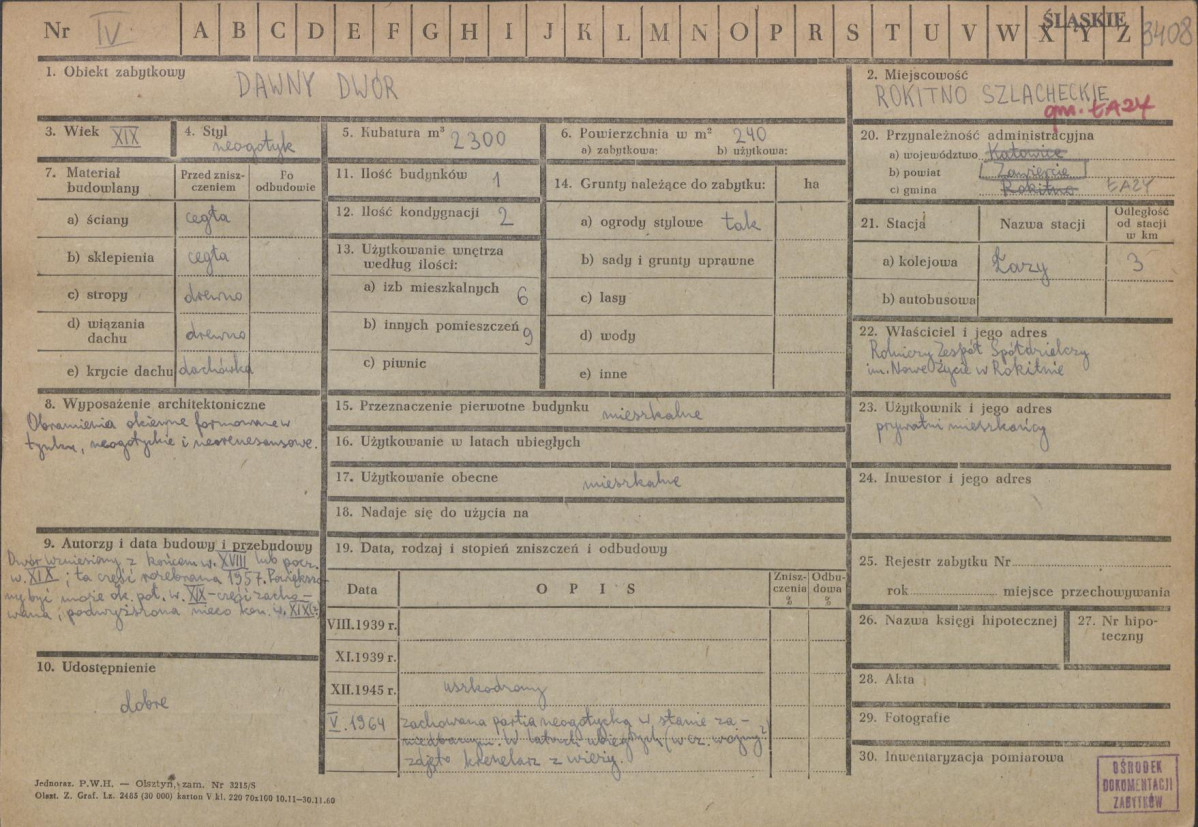 Nr IV. A B C D E F G H I J K L M N O P R S T U V W X Y Z
ŚLĄSKIE
3408
1. Obiekt zabytkowy
DAWNY DWÓR
2. Miejscowość
ROKITNO SZLACHECKIE
gm. ŁAZY
3. Wiek XIX
4. Styl
neogotyk
5. Kubatura m³ 2300
6. Powierzchnia w m² 240
a) zabytkowa: b) użytkowa:
7. Materiał budowlany
Przed znisz-czeniem
Po odbudowie
a) ściany cegła
b) sklepienia cegła
c) stropy drewno
d) wiązania dachu drewno
e) krycie dachu dachówka
8. Wyposażenie architektoniczne
Obramienia okienne formowane w
tynku, neogotyckie i neorenesansowe.
9. Autorzy i data budowy i przebudowy
Dwór wzniesiony z końcem w. XVIII lub pocz.
w. XIX; ta część rozebrana 1957. Powiększo-
ny być może ok. poł. w. XIX - część zacho-
wana; podwyższona nieco kon. w. XIX.
10. Udostępnienie
dobre
11. Ilość budynków 1
12. Ilość kondygnacji 2
13. Użytkowanie wnętrza
według ilości:
a) izb mieszkalnych 6
b) innych pomieszczeń 9
c) piwnic
14. Grunty należące do zabytku: ha
a) ogrody stylowe tak
b) sady i grunty uprawne
c) lasy
d) wody
e) inne
15. Przeznaczenie pierwotne budynku mieszkalne
16. Użytkowanie w latach ubiegłych
17. Użytkowanie obecne mieszkalne
18. Nadaje się do użycia na
19. Data, rodzaj i stopień zniszczeń i odbudowy
Data
OPIS
Znisz-czenia %
Odbu-dowa %
VIII.1939 r.
XI.1939 r.
XII.1945 r. uszkodzony
V.1964 zachowana partia neogotycka w stanie za-
niedbanym. W latach ubiegłych (w cz. wojny?)
zdjęto krenelaż z wieży.
20. Przynależność administracyjna
a) województwo Katowice
b) powiat Zawiercie
c) gmina Rokitno ŁAZY
21. Stacja
Nazwa stacji
Odległość od stacji w km
a) kolejowa Łazy 3
b) autobusowa
22. Właściciel i jego adres
Rolniczy Zespół Spółdzielczy
im. Nowe Życie w Rokitnie
23. Użytkownik i jego adres
prywatni mieszkańcy
24. Inwestor i jego adres
25. Rejestr zabytku Nr
rok miejsce przechowywania
26. Nazwa księgi hipotecznej
27. Nr hipo-teczny
28. Akta
29. Fotografie
30. Inwentaryzacja pomiarowa
OŚRODEK
DOKUMENTACJI
ZABYTKÓW
Jednoraz. P.W.H. — Olsztyn, zam. Nr 3215/S
Olszt. Z. Graf. Lz. 2465 (30 000) karton V kl. 220 70x100 10.11—30.11.60